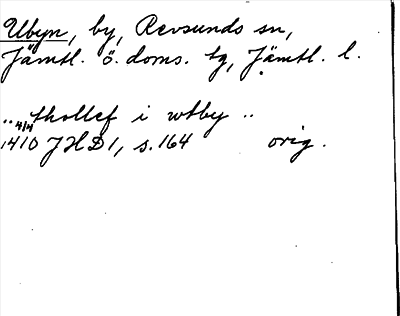 Ubyn, by, Revsunds sn,
Jämtl. ö. doms. tg, Jämtl. l.
.. thollef i wtby ..
4/4
1410 JHD 1, s. 164 orig.